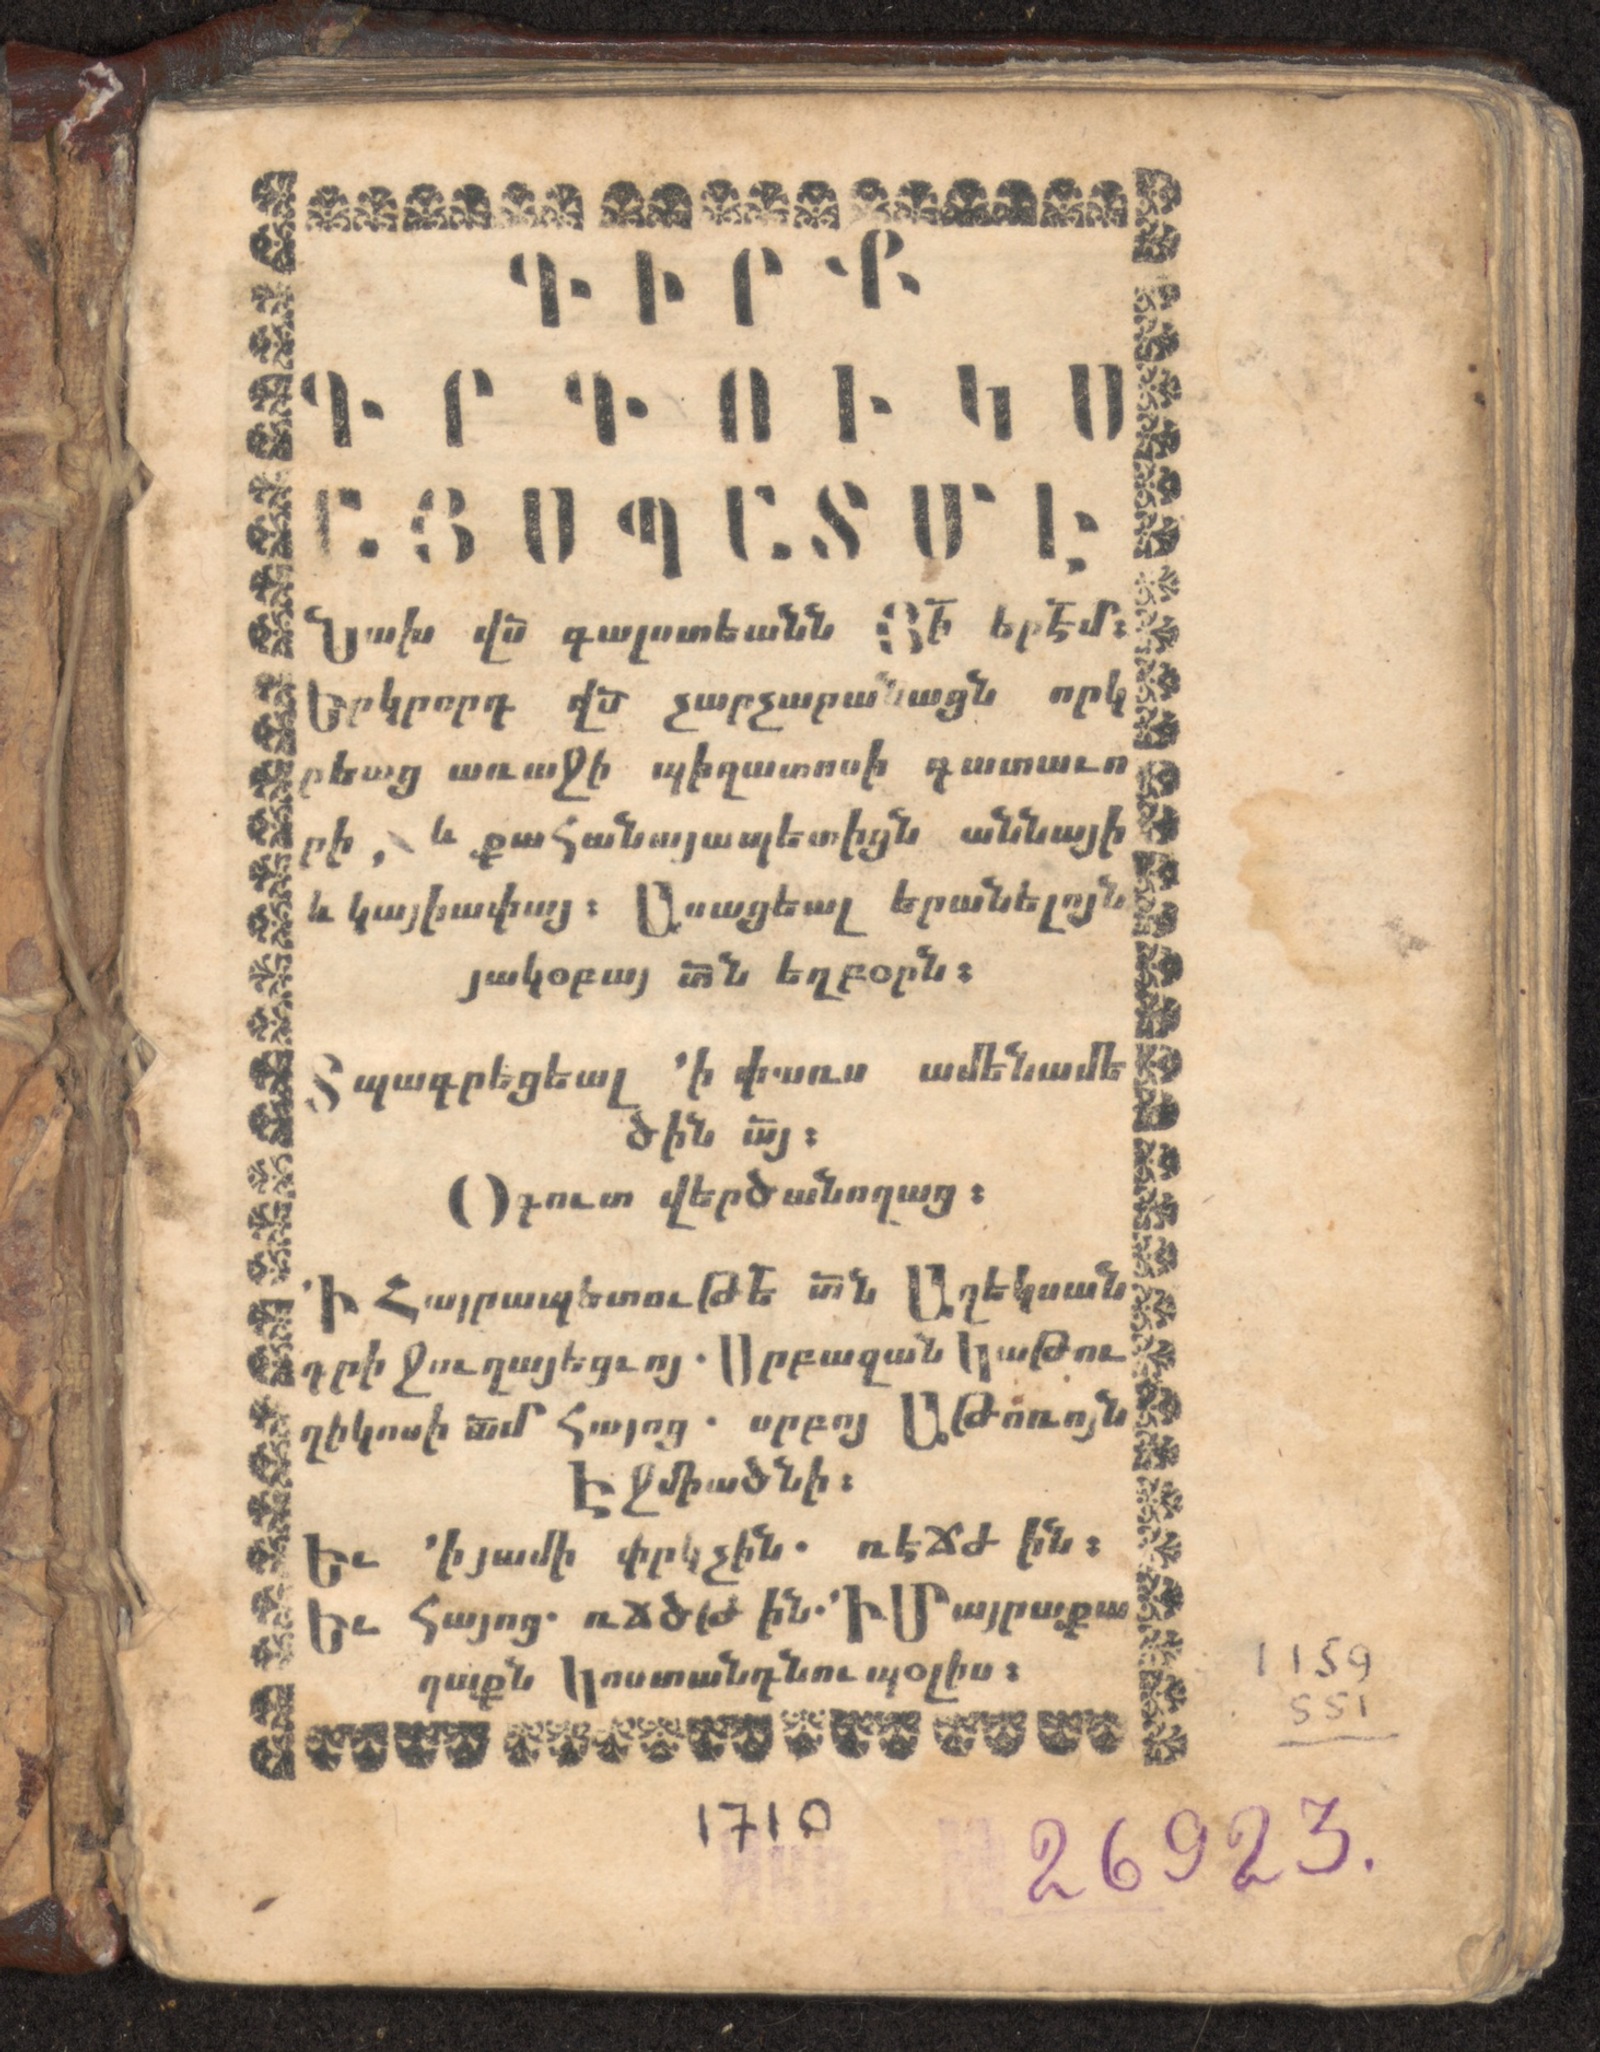 ԳԻՐՔ
ԳՐԳՈՒԿՍ
ԸՅՍՊԸՏՄԷ
Նախ վս̅ գալստեանն Յի̅ երէ̅մ։
Երկրորդ վս̅ չարչարանացն որկ
րեաց առաջի պիղատոսի դատաւո
րի, և քահանայապետիցն աննայի
և կայիափայ։ Ասացեալ երանելոյն
յակօբայ տ̅ն եղբօրն։
Տպագրեցեալ ՚ի փառս ամենամե
ծին ա̅յ։
Օգուտ վերծանողաց։
՚Ի Հայրապետութե̅ տ̅ն Աղեկսան
դրի ջուղայեցւոյ. Սրբազան կաթու
ղիկոսի ա̅մ հայոց. սրբոյ Աթոռոյն
Էջմիածնի։
Եւ ՚ի յամի փրկչին. ռէճժ ին։
Եւ հայոց. ռճծթ ին. ՚Ի Մայրաքա
ղաքն կոստանդնուպօլիս։
1159
551
1710
26923.